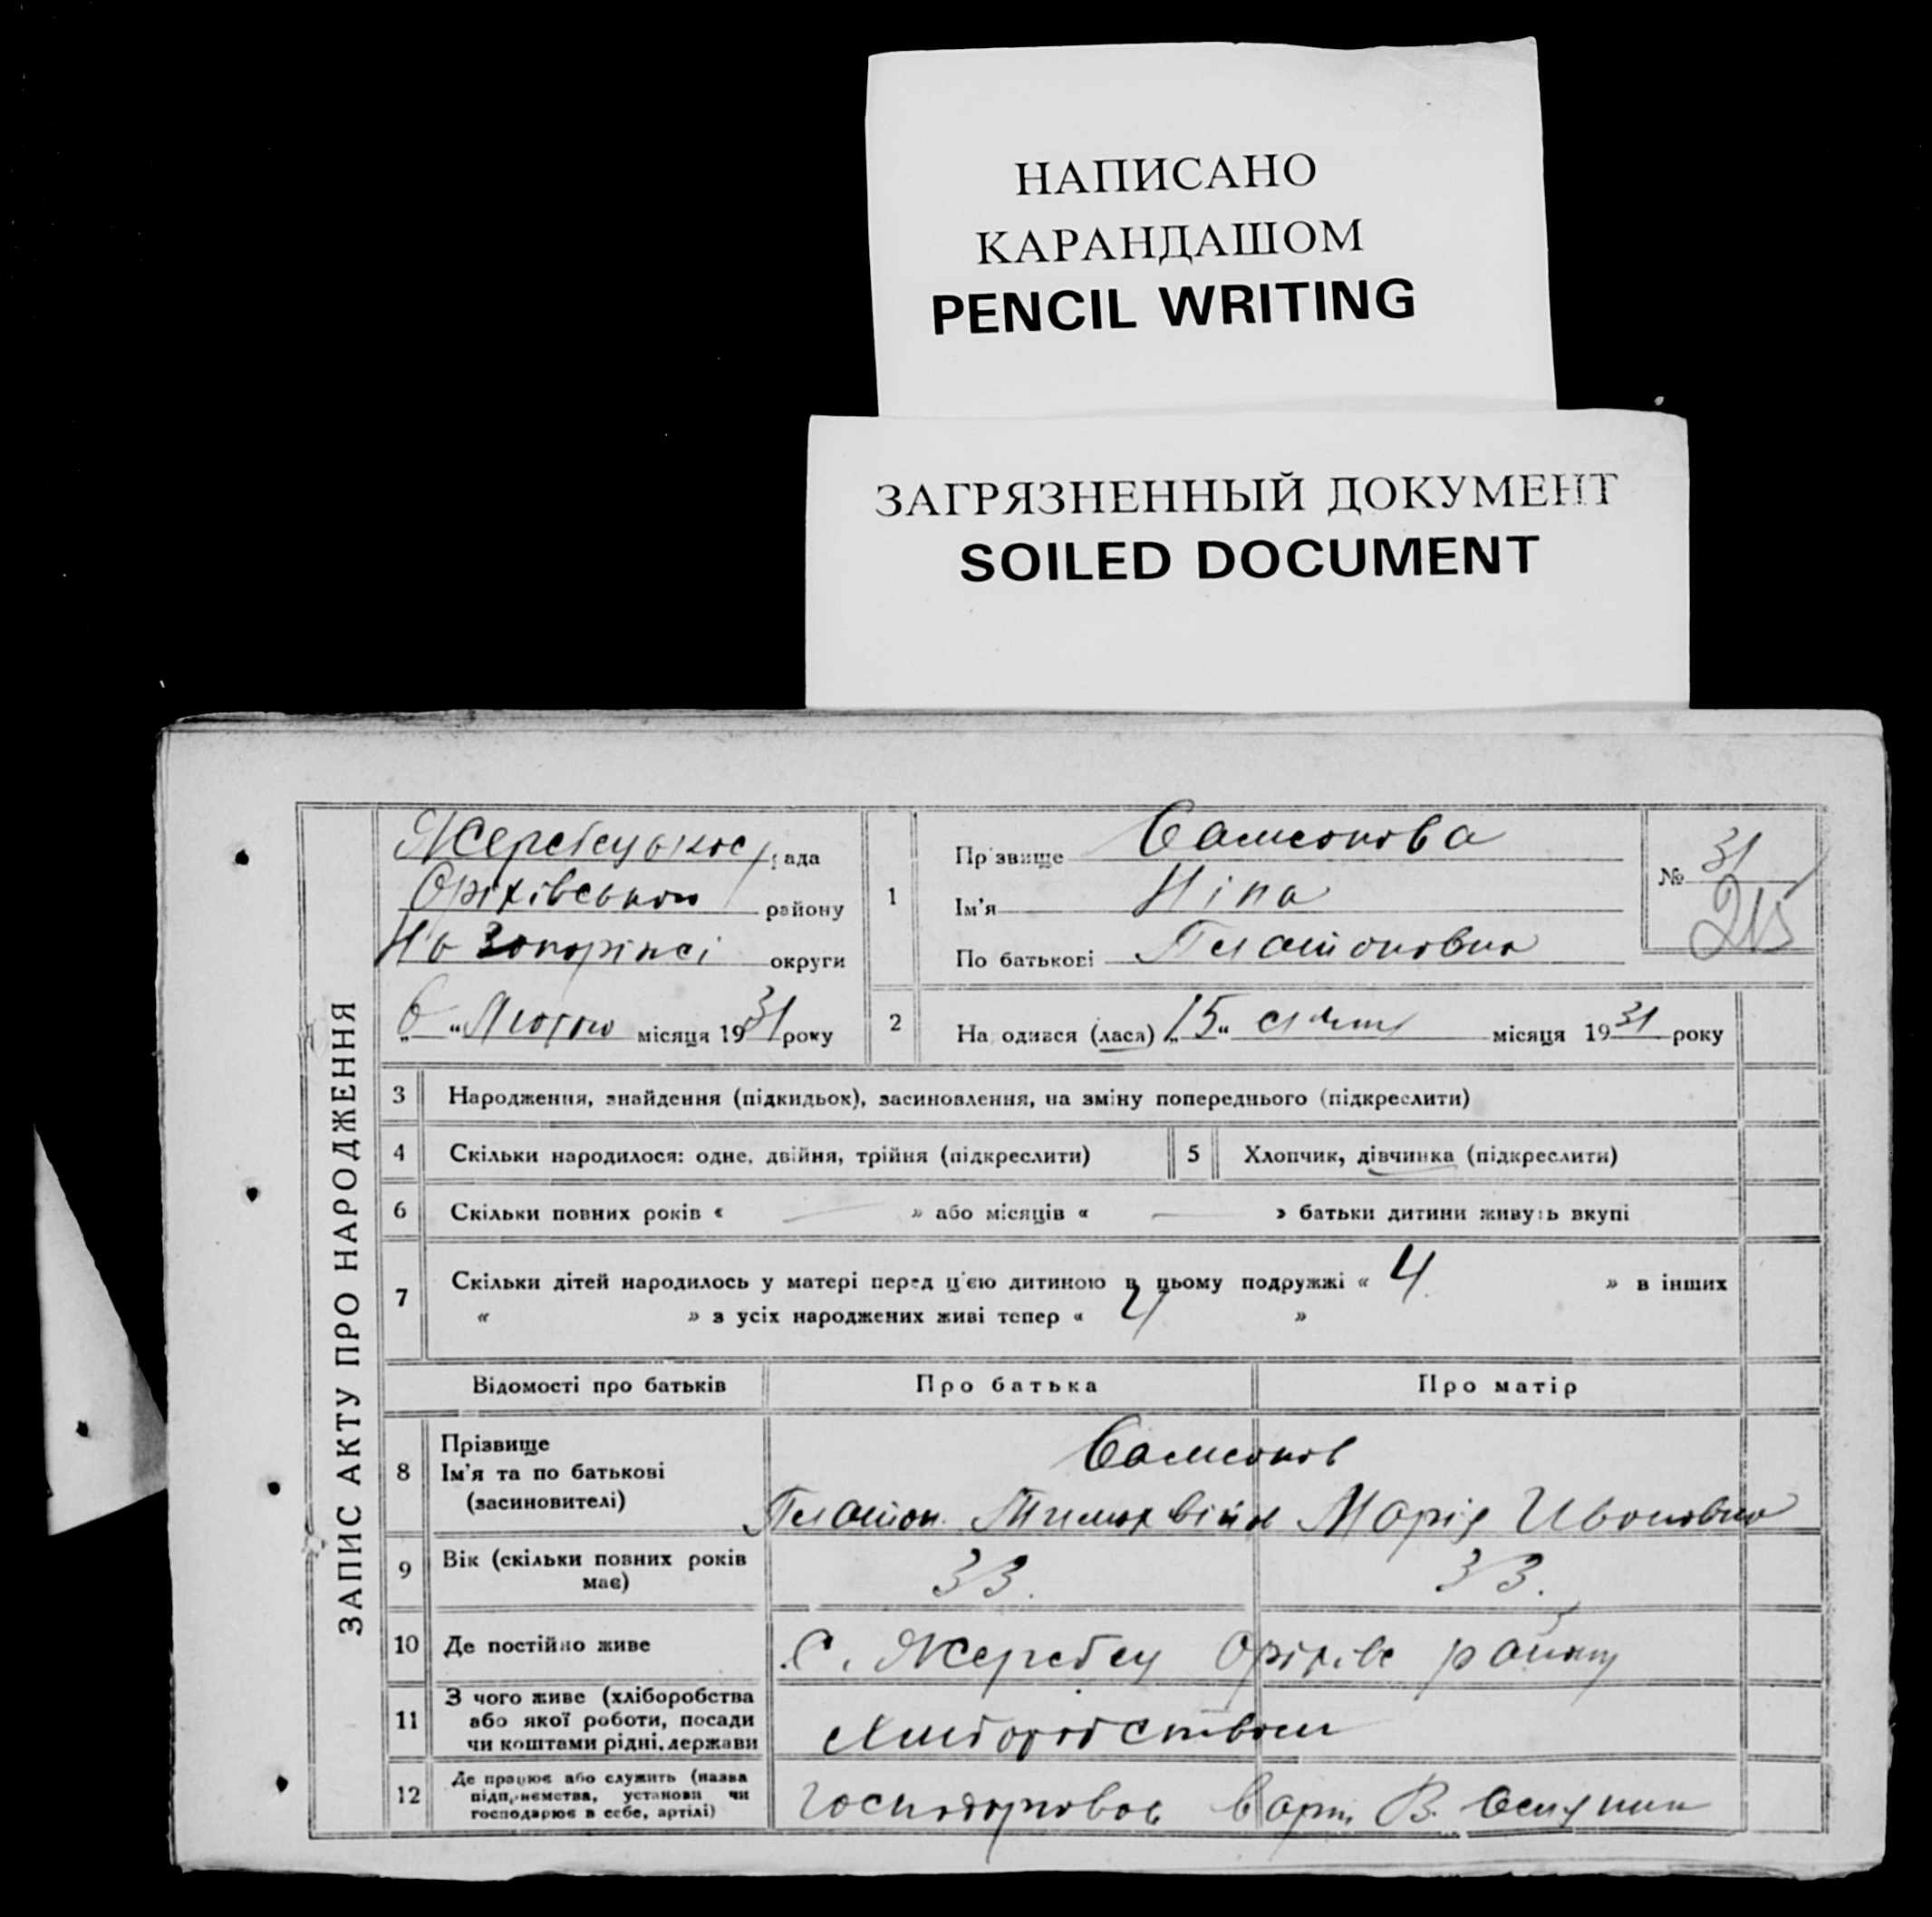 НАПИСАНО
КАРАНДАШОМ
PENCIL WRITING
ЗАГРЯЗНЕННЫЙ ДОКУМЕНТ
SOILED DOCUMENT
ЗАПИС АКТУ ПРО НАРОДЖЕННЯ
Жеребецької рада
Оріхівського району
На Запоріжжі округи
„6“ Лютого місяця 1931 року
1 Прізвище Самсонова
Ім'я Ніна
По батькові Платоновна
№ 31
215
2 Народився (лася) „15“ січня місяця 1931 року
3 Народження, знайдення (підкидьок), засиновлення, на зміну попереднього (підкреслити)
4 Скільки народилося: одне, двійня, трійня (підкреслити) 5 Хлопчик, дівчинка (підкреслити)
6 Скільки повних років « — » або місяців « — » батьки дитини живуть вкупі
7 Скільки дітей народилось у матері перед ц'єю дитиною в цьому подружжі « 4 » в інших
« » з усіх народжених живі тепер « 4 »
Відомості про батьків Про батька Про матір
8 Прізвище
Ім'я та по батькові
(засиновителі)
Самсонов
Платон Марія Ивановна
9 Вік (скільки повних років
має) 33. 33.
10 Де постійно живе С. Жеребец Оріхівс району
11 З чого живе (хліборобства
або якої роботи, посади
чи коштами рідні, держави
Хліборобством
12 Де працює або служить (назва
підприємства, установи чи
господарює в себе, артілі)
в арт. В.